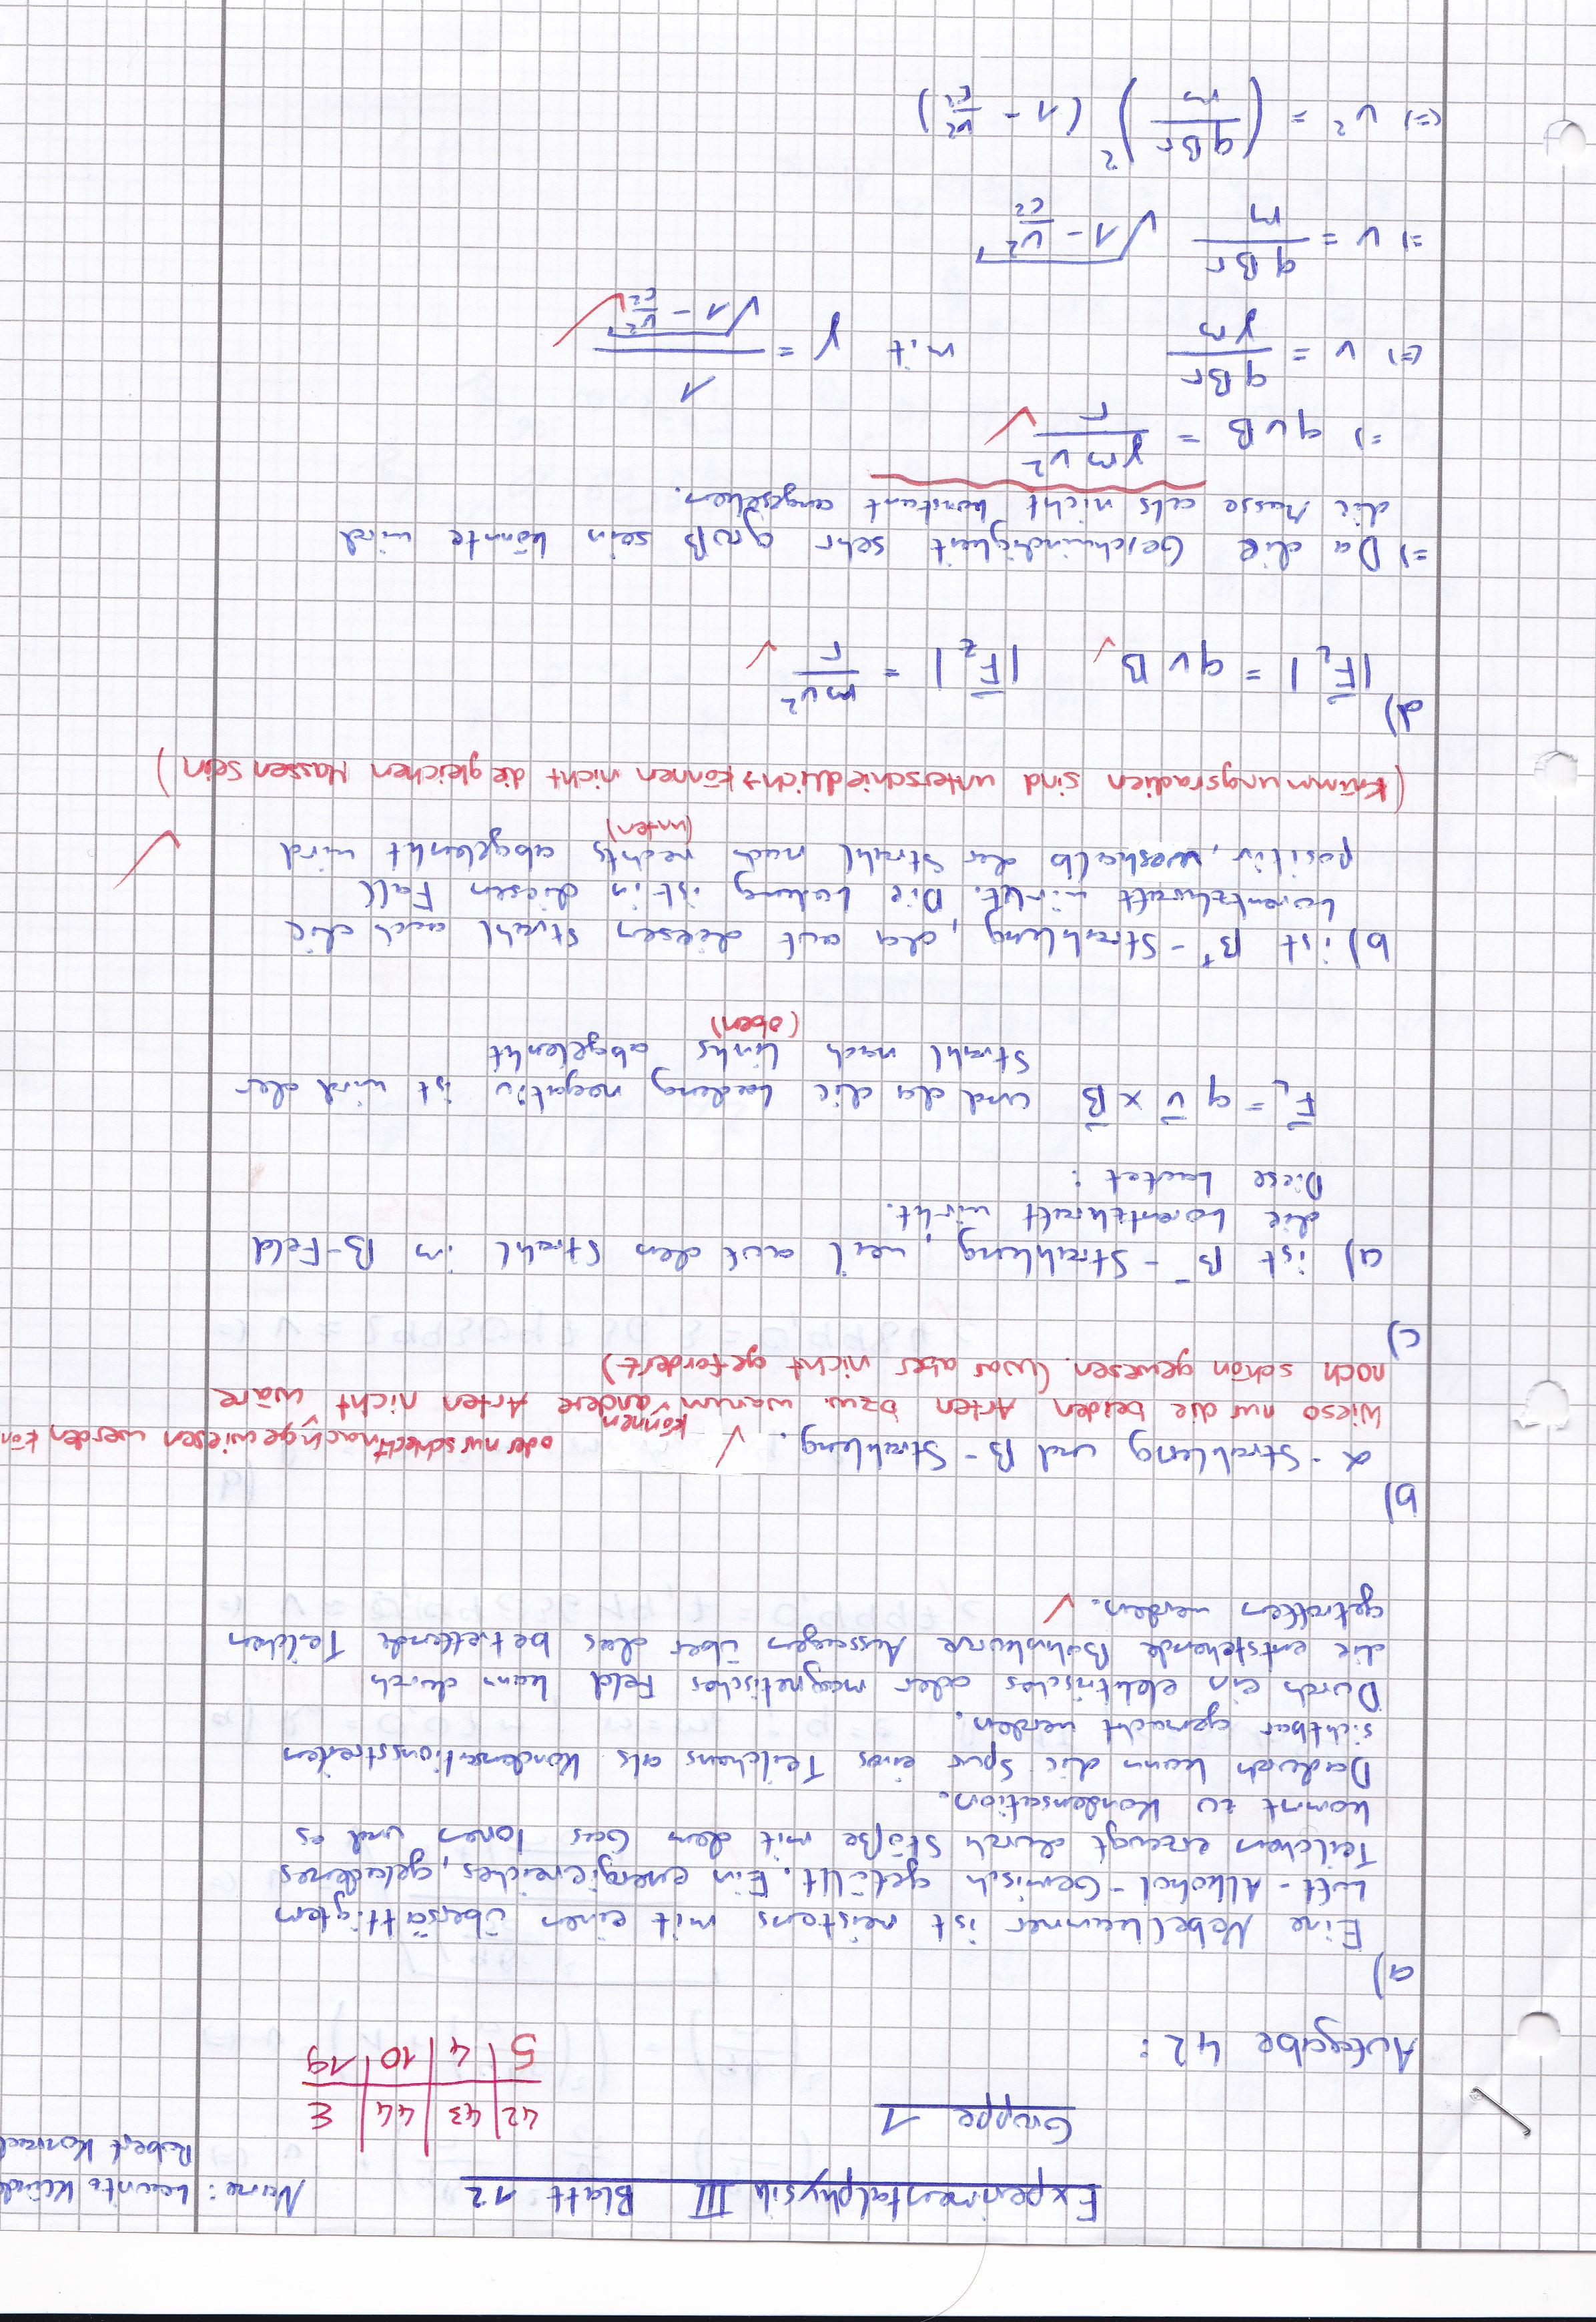 Experimentalphysik III Blatt 12
Name: Lauritz
Robert
Gruppe 1
42 | 43 | 44 | Σ
5 | 4 | 10 | 19
Aufgabe 42:
a)
Eine Nebelkammer ist meistens mit einem übersättigtem
Luft-Alkohol-Gemisch gefüllt. Ein energiereiches, geladenes
Teilchen erzeugt durch Stöße mit dem Gas Ionen und es
kommt zu Kondensation.
Dadurch kann die Spur eines Teilchens als Kondensationsstreifen
sichtbar gemacht werden.
Durch ein elektrisches oder magnetisches Feld kann durch
die entstehende Bahnkurve Aussagen über das betreffende Teilchen
getroffen werden. ✓
b)
α-Strahlung und β-Strahlung. ✓
können oder nur schlecht nachgewiesen werden kön
Wieso nur die beiden Arten bzw. warum andere Arten nicht wäre
noch schön gewesen. (War aber nicht gefordert)
c)
a) ist β⁻-Strahlung, weil auf den Strahl im B-Feld
die Lorentzkraft wirkt.
Diese Lautet:
F⃗_L = q v⃗ × B⃗ und da die Ladung negativ ist wird der
Strahl nach links abgelenkt
(oben)
b) ist β⁺-Strahlung, da auf diesen Strahl auch die
Lorentzkraft wirkt. Die Ladung ist in diesem Fall
positiv, weshalb der Strahl nach rechts abgelenkt wird ✓
(unten)
(Krümmungsradien sind unterschiedlich → können nicht die gleichen Massen sein)
d)
|F⃗_L| = q v B ✓ |F⃗_Z| = mv²/r ✓
=> Da die Geschwindigkeit sehr groß sein könnte wird
die Masse als nicht konstant angesehen.
=> q v B = γ m v²/r ✓
<=> v = qBr/(γm) mit γ = 1/√(1 - v²/c²) ✓
=> v = qBr/m √(1 - v²/c²)
<=> v² = (qBr/m)² (1 - v²/c²)